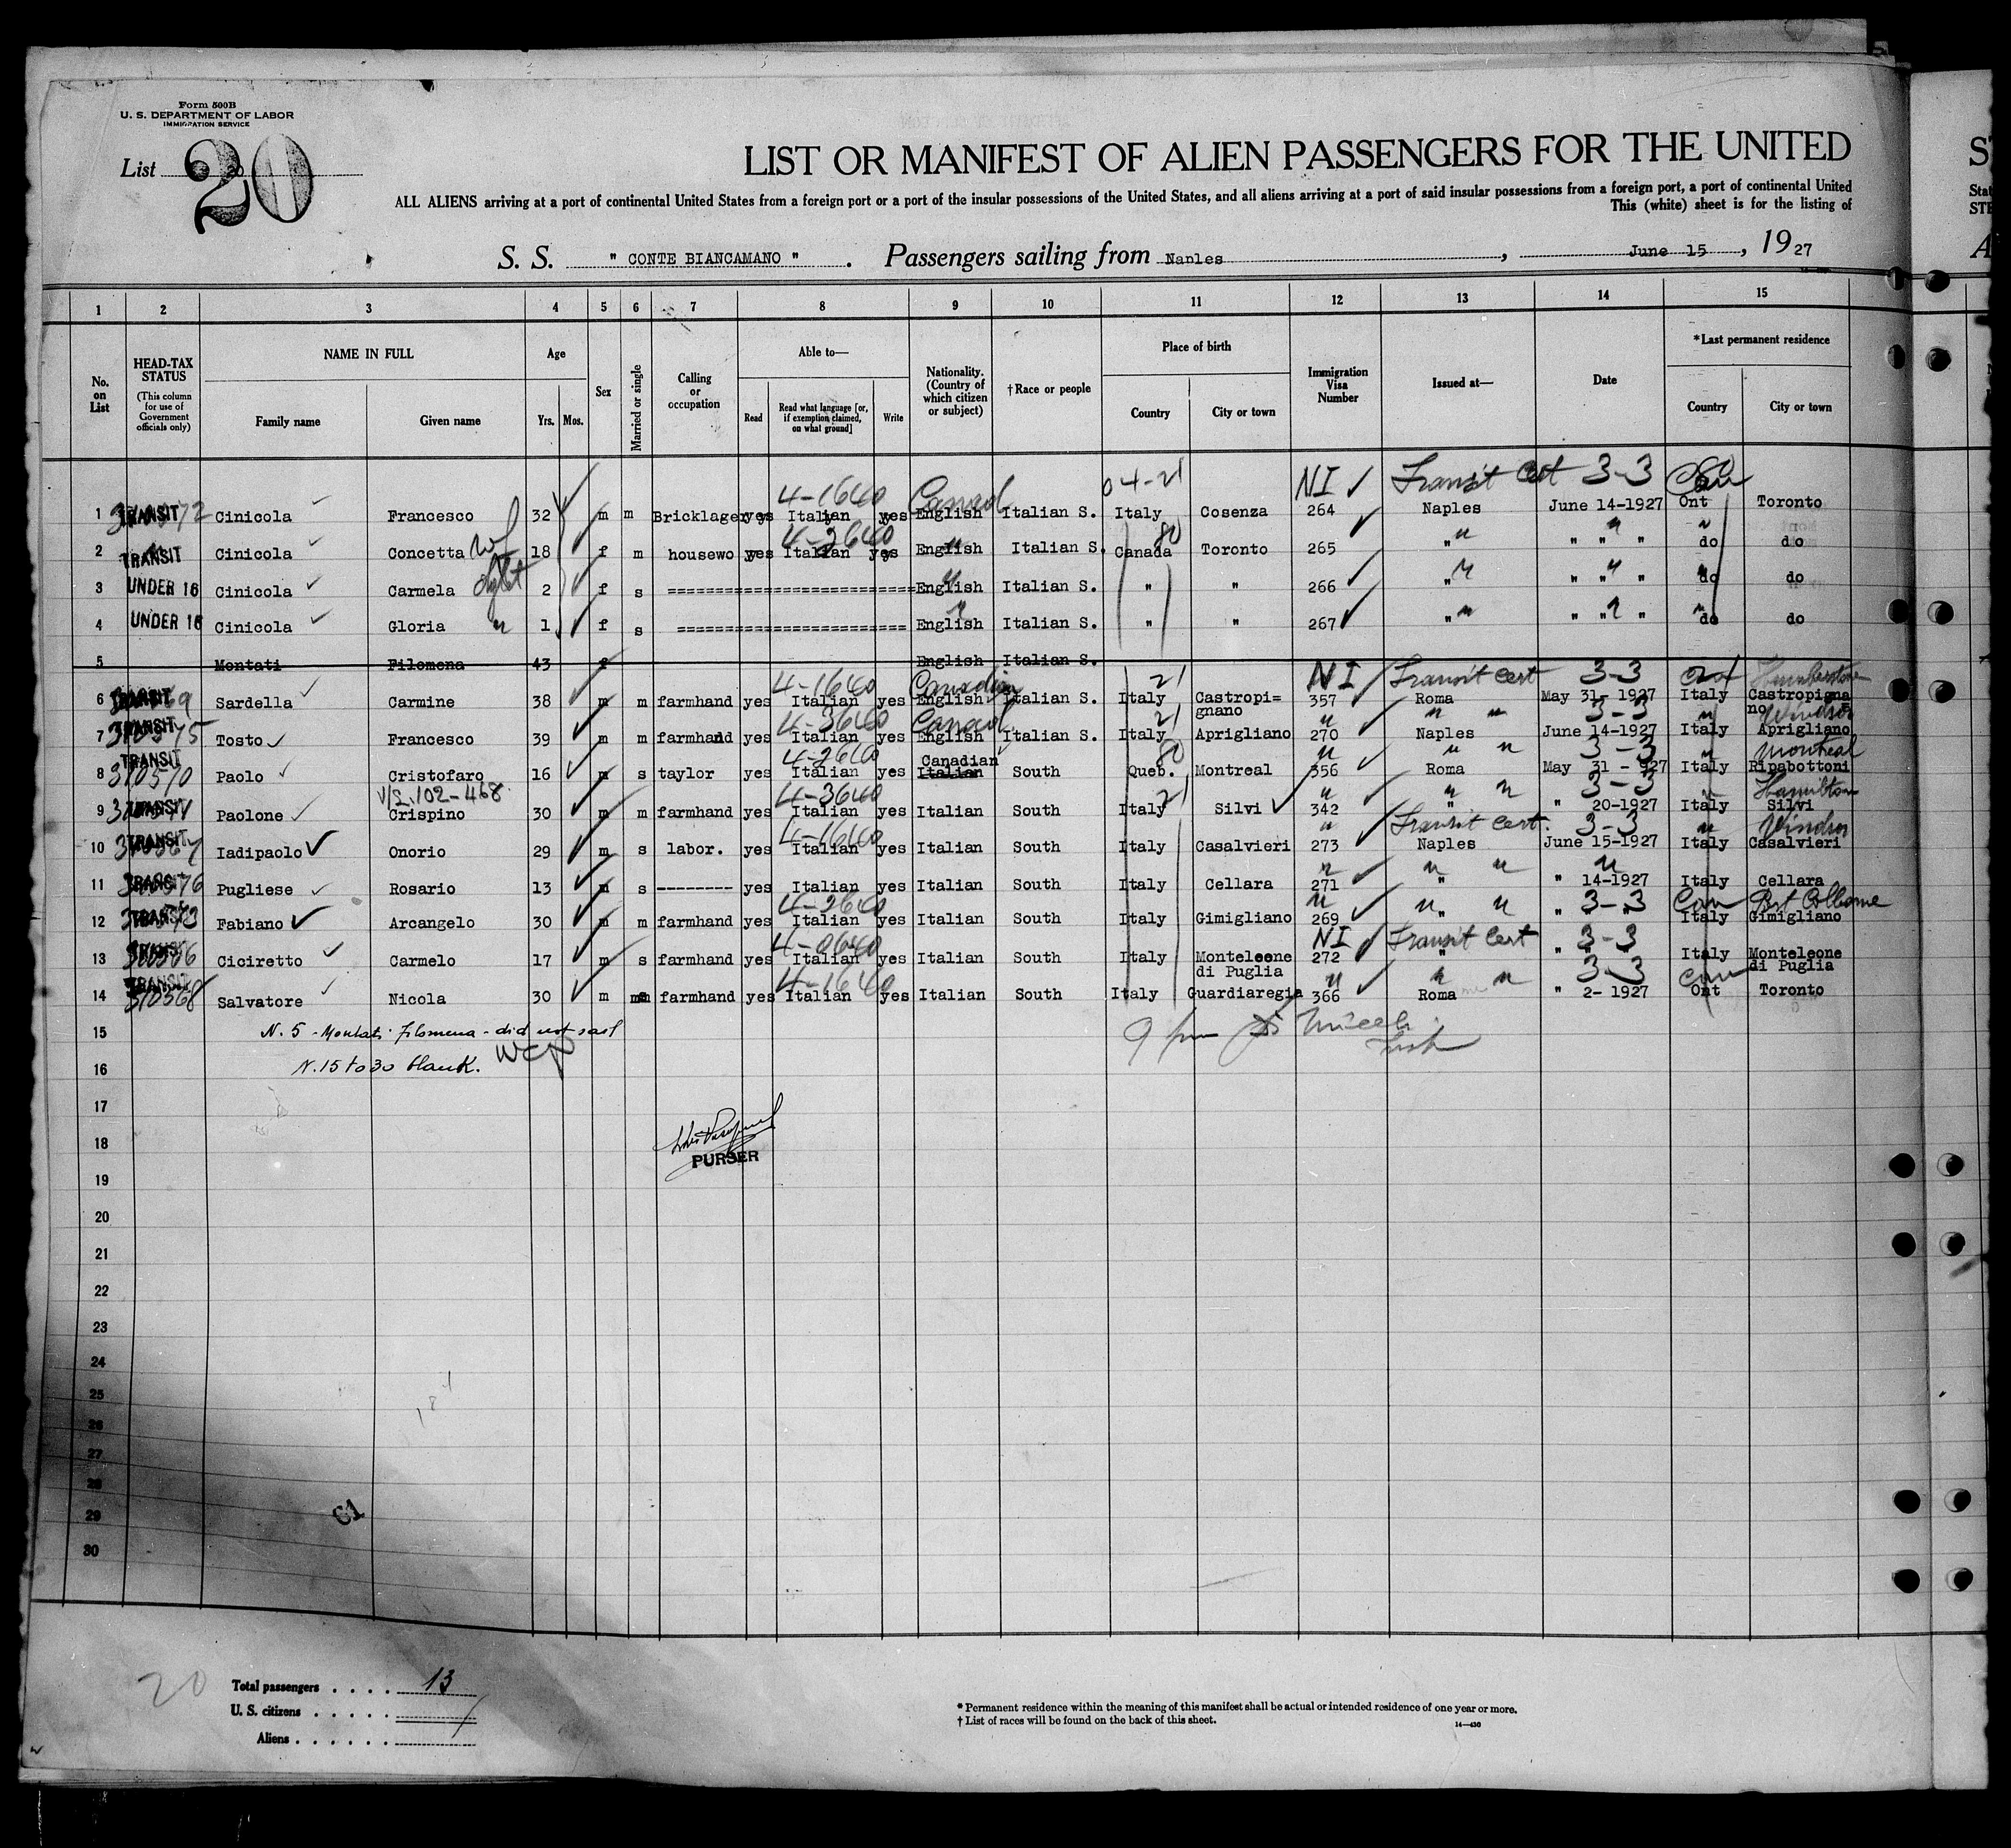 Form 500B
U. S. DEPARTMENT OF LABOR
IMMIGRATION SERVICE
List 20
20
LIST OR MANIFEST OF ALIEN PASSENGERS FOR THE UNITED
ALL ALIENS arriving at a port of continental United States from a foreign port or a port of the insular possessions of the United States, and all aliens arriving at a port of said insular possessions from a foreign port, a port of continental United
This (white) sheet is for the listing of
S. S. " CONTE BIANCAMANO " . Passengers sailing from Naples, June 15, 1927
1 2 3 4 5 6 7 8 9 10 11 12 13 14 15
No. on List
HEAD-TAX STATUS (This column for use of Government officials only)
NAME IN FULL
Family name Given name
Age Yrs. Mos.
Sex
Married or single
Calling or occupation
Able to— Read Read what language [or, if exemption claimed, on what ground] Write
Nationality. (Country of which citizen or subject)
†Race or people
Place of birth Country City or town
Immigration Visa Number
Issued at—
Date
*Last permanent residence Country City or town
4-1640 Canad 04-21 NI Transit Cert 3-3 Can
1 TRANSIT Cinicola Francesco 32 m m Bricklager yes Italian yes English Italian S. Italy Cosenza 264 Naples June 14-1927 Ont Toronto
4-2640 " 80 " " "
2 TRANSIT Cinicola Concetta wf 18 f m housewo yes Italian yes English Italian S. Canada Toronto 265 " " " " do do
3 UNDER 16 Cinicola Carmela dght 2 f s ======================= English Italian S. " " 266 " " " " do do
4 UNDER 16 Cinicola Gloria " 1 f s ===================== English Italian S. " " 267 " " " " do do
5 Montati Filomena 43 f English Italian S.
4-1640 Canadian 21 NI Transit Cert 3-3 Can Humberstone
6 TRANSIT Sardella Carmine 38 m m farmhand yes Italian yes English Italian S. Italy Castropi= 357 Roma May 31- 1927 Italy Castropigna
gnano no
4-3640 Canad 21 " " " 3-3 " Windsor
7 TRANSIT Tosto Francesco 39 m m farmhand yes Italian yes English Italian S. Italy Aprigliano 270 Naples June 14-1927 Italy Aprigliano
4-2640 Canadian 80 " " " 3-3 " Montreal
8 TRANSIT 310570 Paolo Cristofaro 16 m s taylor yes Italian yes Italian South Queb. Montreal 356 Roma May 31 - 927 Italy Ripabottoni
V/L.102-468 4-3640 21 " " " 3-3 Hamilton
9 TRANSIT Paolone Crispino 30 m m farmhand yes Italian yes Italian South Italy Silvi 342 " " 20-1927 Italy Silvi
4-1640 " Transit Cert. 3-3 " Windsor
10 TRANSIT Iadipaolo Onorio 29 m s labor. yes Italian yes Italian South Italy Casalvieri 273 Naples June 15-1927 Italy Casalvieri
" " " "
11 TRANSIT Pugliese Rosario 13 m s -------- yes Italian yes Italian South Italy Cellara 271 " " 14-1927 Italy Cellara
4-2640 " " " 3-3 Can Port Colborne
12 TRANSIT Fabiano Arcangelo 30 m m farmhand yes Italian yes Italian South Italy Gimigliano 269 " " " Italy Gimigliano
4-0640 NI Transit Cert 3-3
13 TRANSIT Ciciretto Carmelo 17 m s farmhand yes Italian yes Italian South Italy Monteleone 272 " " Italy Monteleone
di Puglia di Puglia
4-1640 " " " 3-3 Can
14 TRANSIT 310568 Salvatore Nicola 30 m m farmhand yes Italian yes Italian South Italy Guardiaregia 366 Roma " 2- 1927 Ont Toronto
15 N. 5 - Montati Filomena - did not sail
16 N. 15 to 30 blank.
17
18
PURSER
19
20
21
22
23
24
25
26
27
28
29
30
61
20
Total passengers . . . . 13
U. S. citizens . . . . .
Aliens . . . . . .
* Permanent residence within the meaning of this manifest shall be actual or intended residence of one year or more.
† List of races will be found on the back of this sheet. 14—430